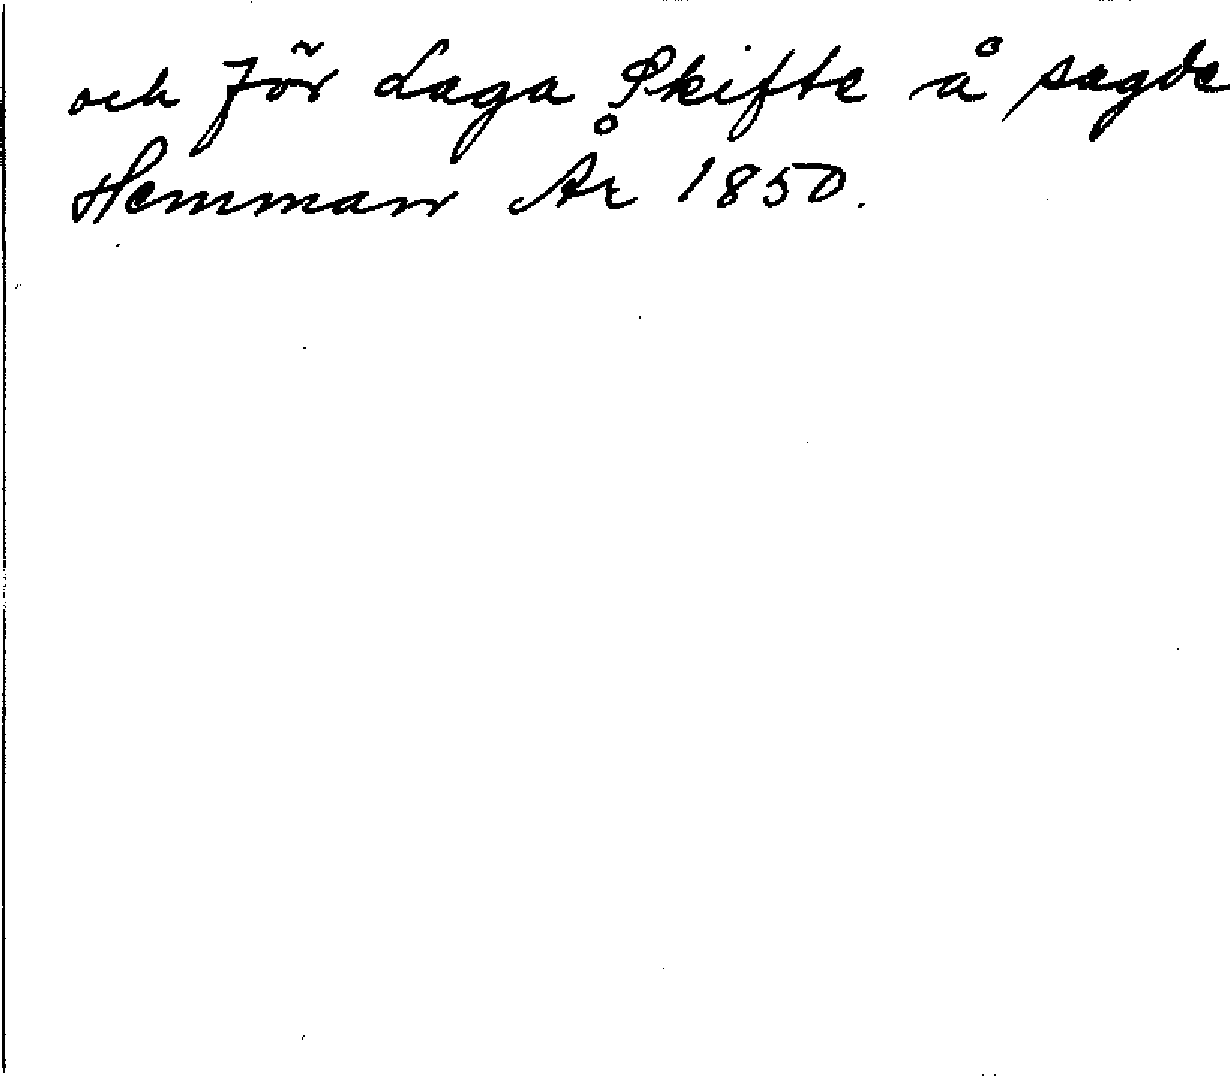 och för Laga Skifte å sagde
Hemman År 1850.